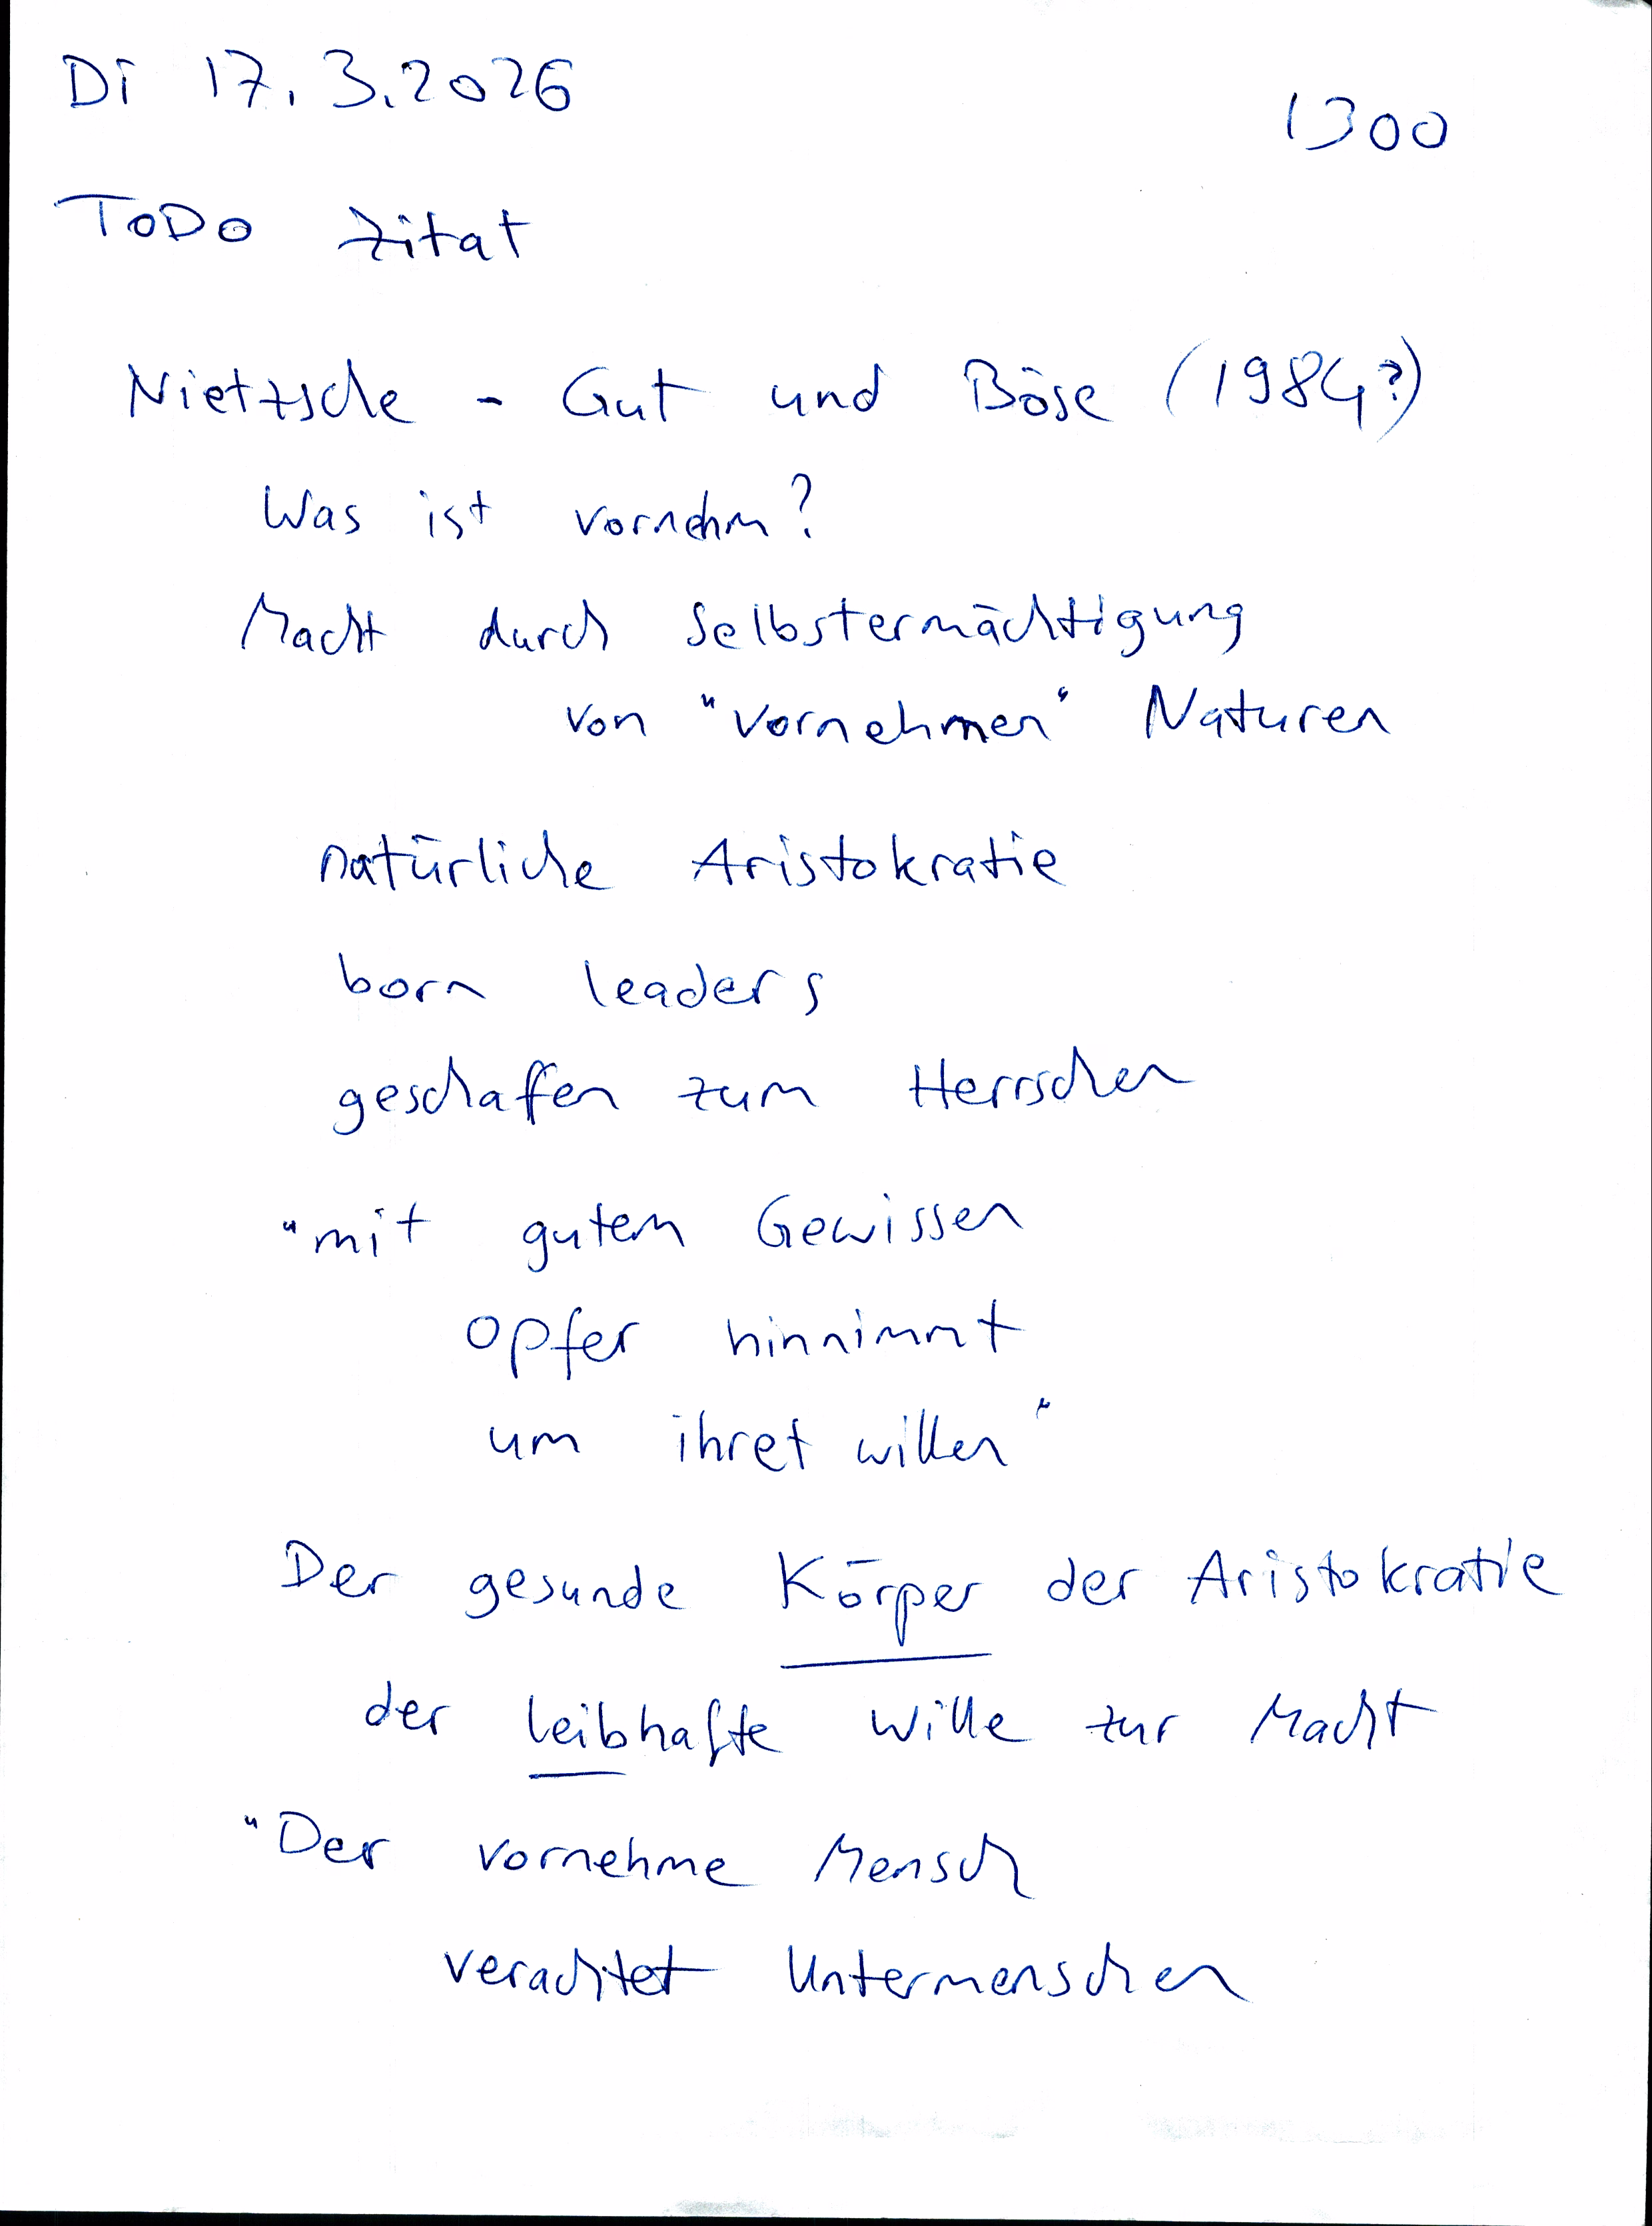 Di 17.3.2026
1300
ToDo Zitat
Nietzsche - Gut und Böse (1984?)
Was ist vornehm?
Macht durch Selbstermächtigung
von "vornehmen" Naturen
natürliche Aristokratie
born leaders
geschaffen zum Herrschen
"mit gutem Gewissen
Opfer hinnimmt
um ihret willen"
Der gesunde Körper der Aristokratie
der leibhafte Wille zur Macht
"Der vornehme Mensch
verachtet Untermenschen